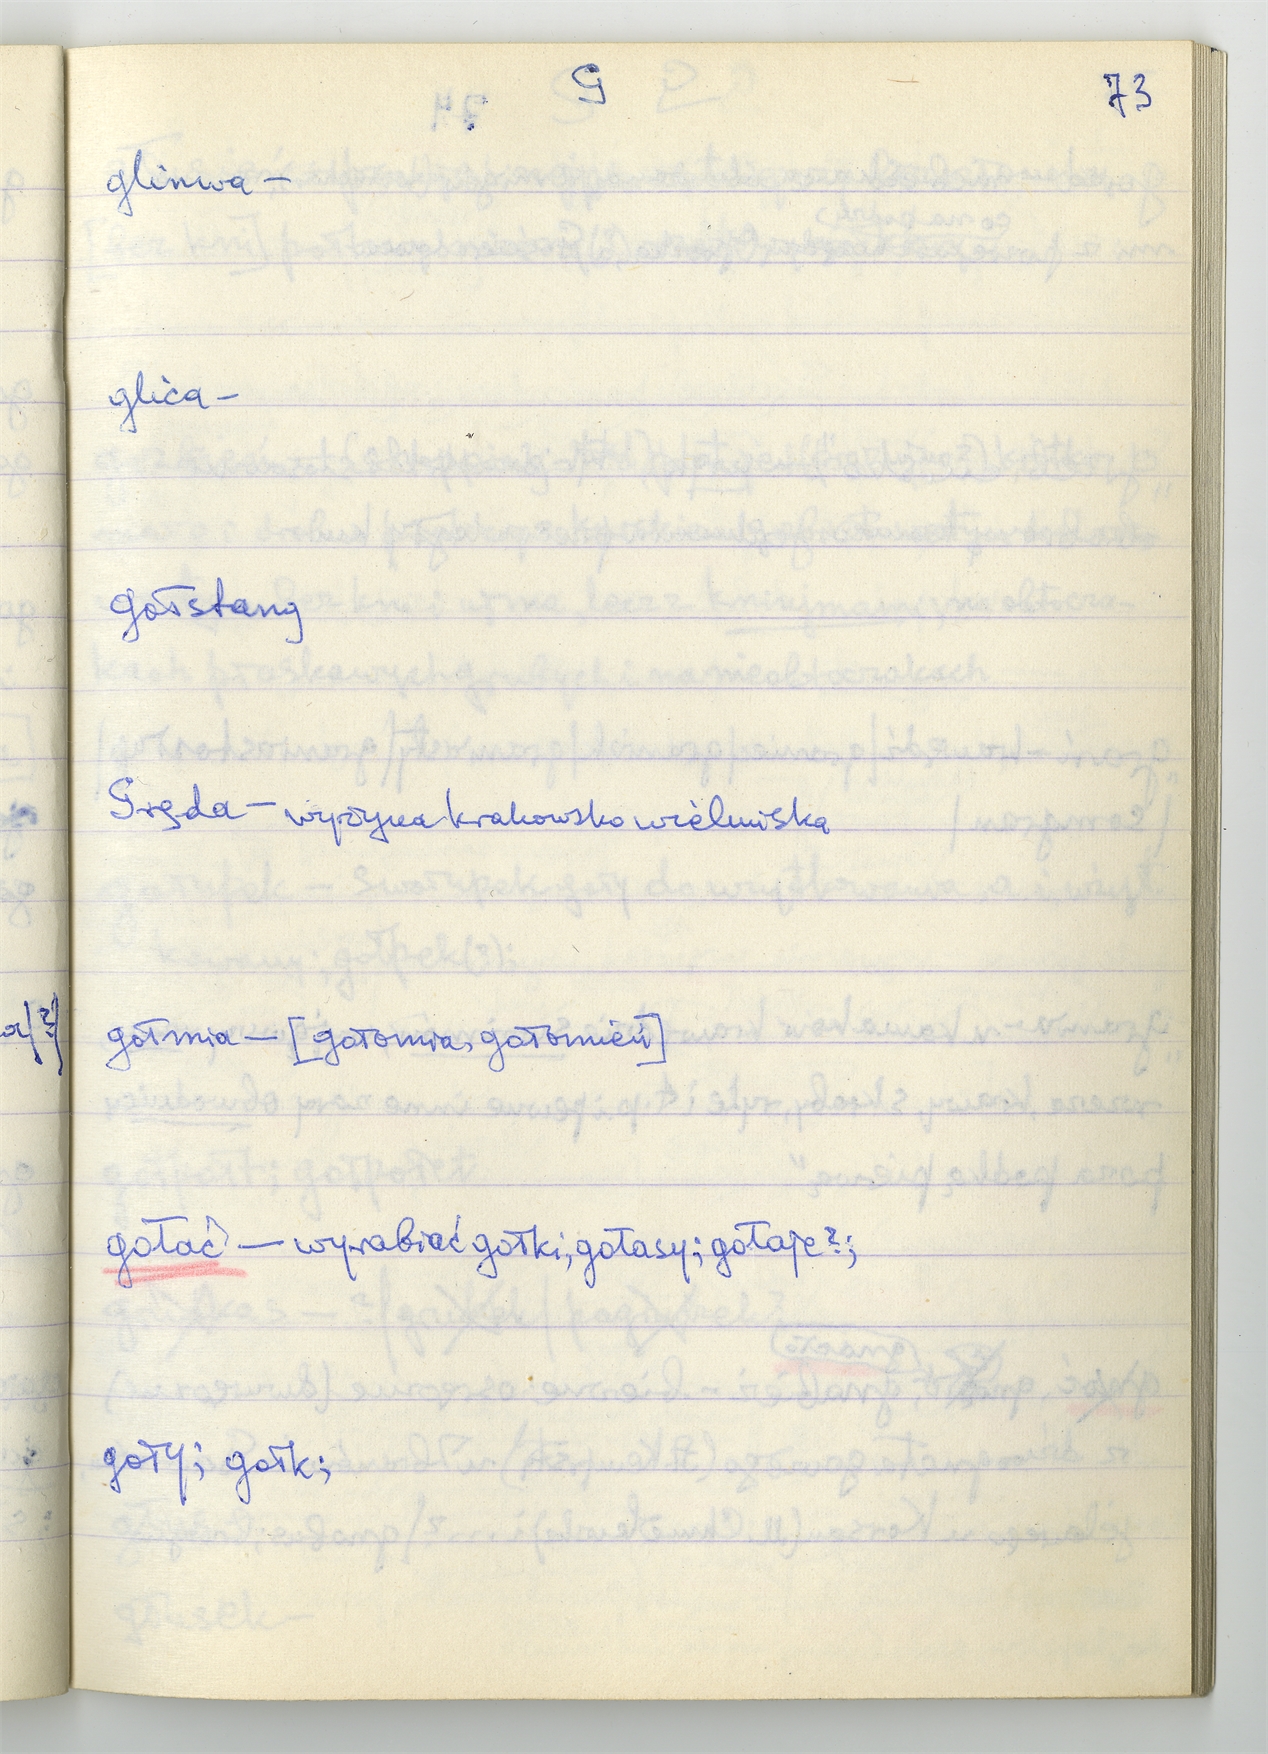 G 73
glinwa -
glica -
gołstang
Gręda - wyżyna krakowsko wielińska
gołmia - [gołomia, gołomień]
gołać - wyrabiać gołki; gołasy; gołaje?;
goły; gołk;